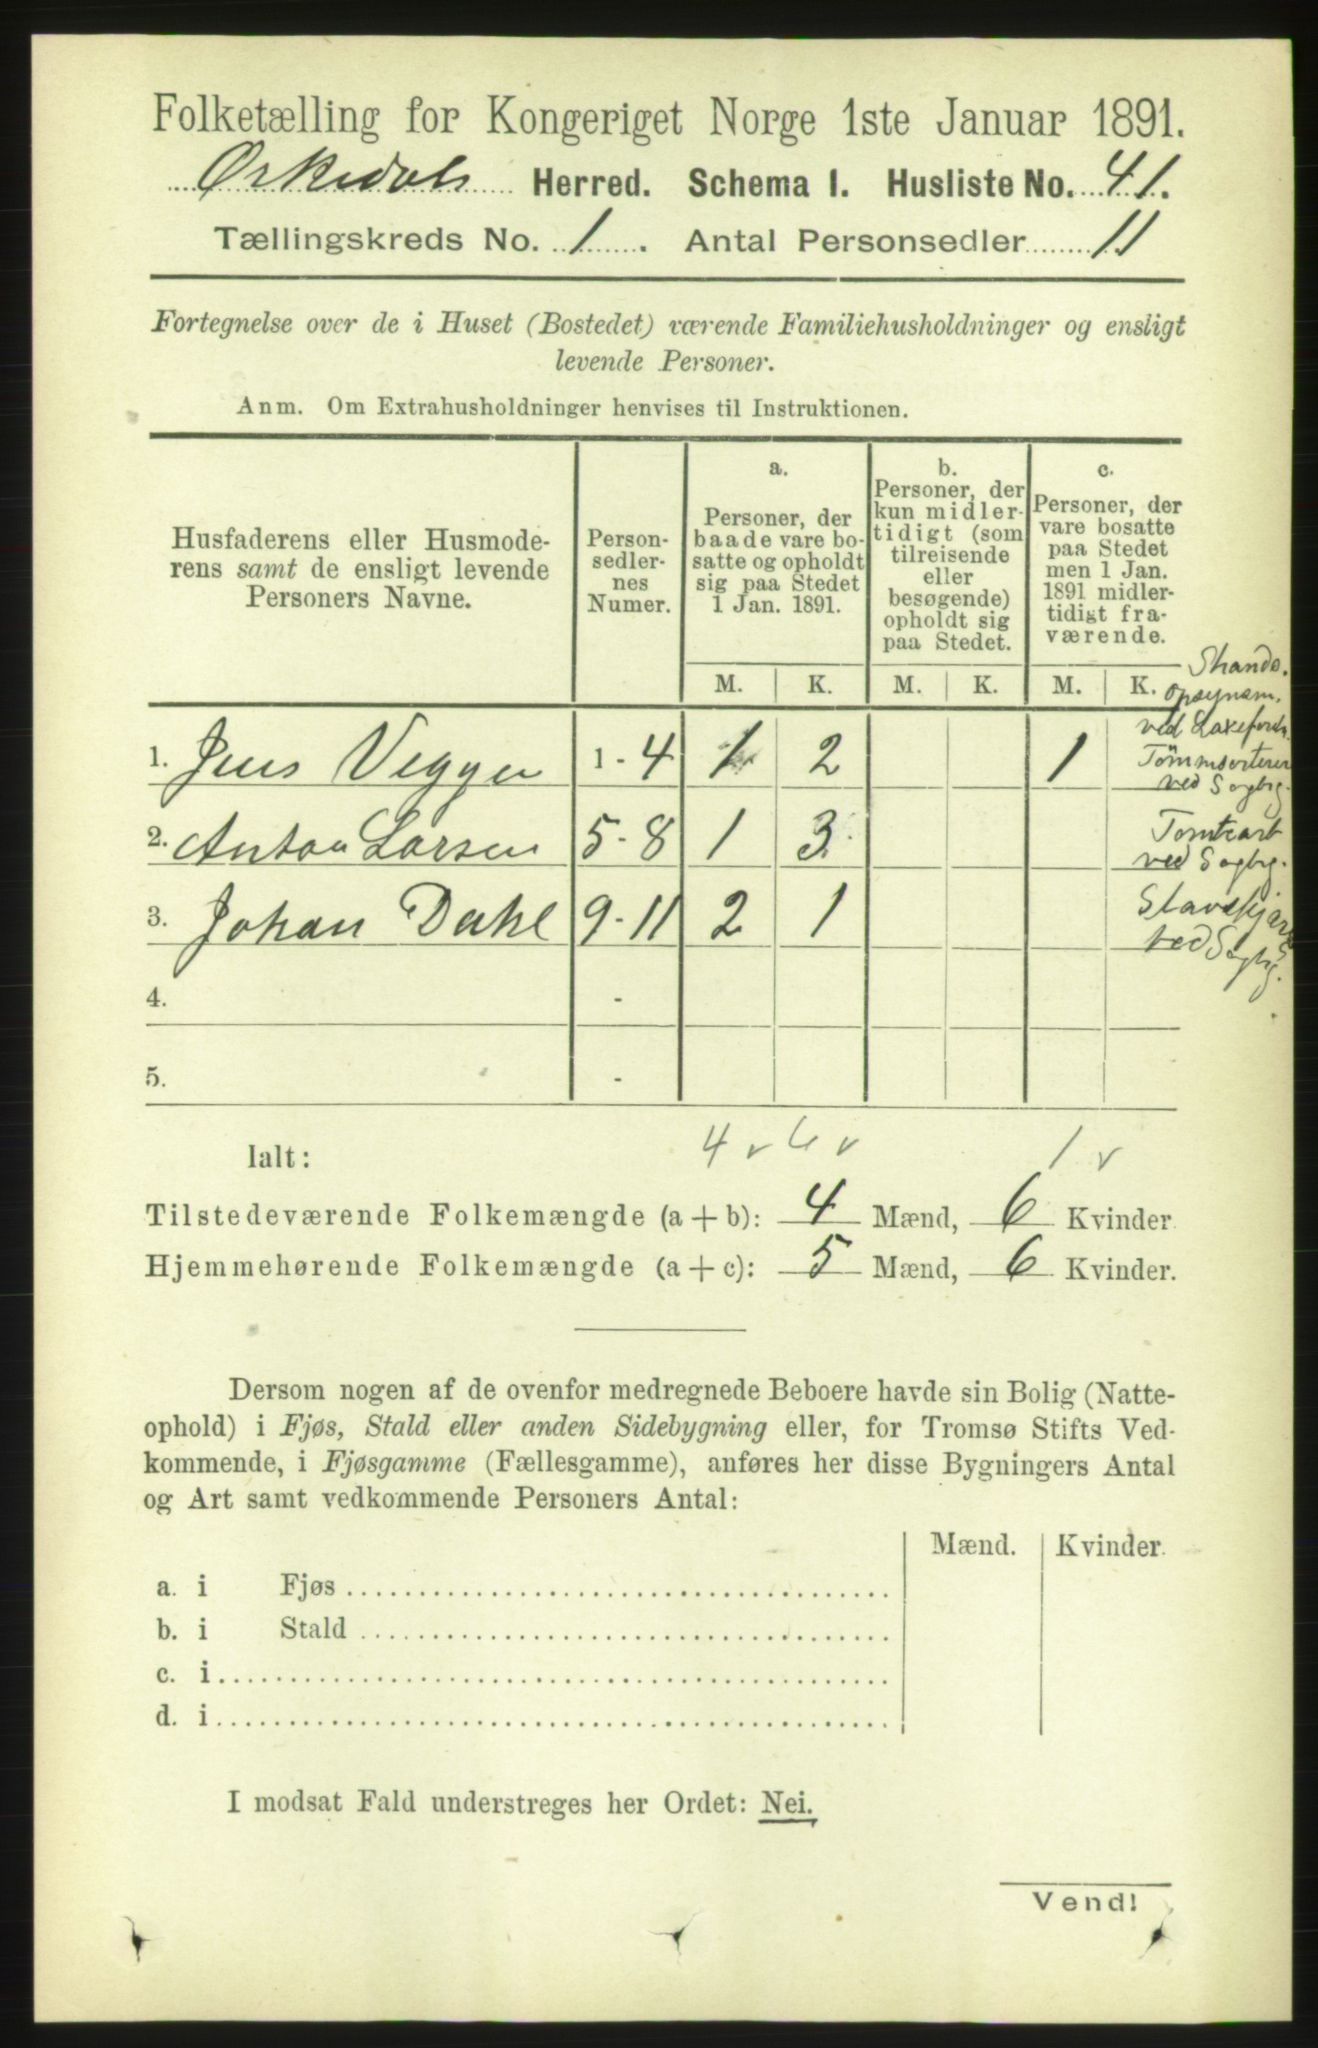 Folketælling for Kongeriget Norge 1ste Januar 1891.
Ørkedals Herred. Schema I. Husliste No. 41.
Tællingskreds No. 1. Antal Personsedler 11
Fortegnelse over de i Huset (Bostedet) værende Familiehusholdninger og ensligt
levende Personer.
Anm. Om Extrahusholdninger henvises til Instruktionen.
Husfaderens eller Husmode-
rens samt de ensligt levende
Personers Navne.
Person-
sedler-
nes
Numer.
a.
Personer, der
baade vare bo-
satte og opholdt
sig paa Stedet
1 Jan. 1891.
b.
Personer, der
kun midler-
tidigt (som
tilreisende
eller
besøgende)
opholdt sig
paa Stedet.
c.
Personer, der
vare bosatte
paa Stedet
men 1 Jan.
1891 midler-
tidigt fra-
værende.
M. K. M. K. M. K.
opsynsm.
ved
1. Jens Vigger 1 - 4 1 2 1
ved Sagbrg.
2. Anton Larsen 5 - 8 1 3
ved Sagbrg.
3. Johan Dahl 9 - 11 2 1
ved Sagbrg.
4. -
5. -
Ialt: 4 v 6 v 1 v
Tilstedeværende Folkemængde (a + b): 4 Mænd, 6 Kvinder
Hjemmehørende Folkemængde (a + c): 5 Mænd, 6 Kvinder.
Dersom nogen af de ovenfor medregnede Beboere havde sin Bolig (Natte-
ophold) i Fjøs, Stald eller anden Sidebygning eller, for Tromsø Stifts Ved-
kommende, i Fjøsgamme (Fællesgamme), anføres her disse Bygningers Antal
og Art samt vedkommende Personers Antal:
Mænd. Kvinder.
a. i Fjøs
b. i Stald
c. i
d. i
I modsat Fald understreges her Ordet: Nei.
Vend!